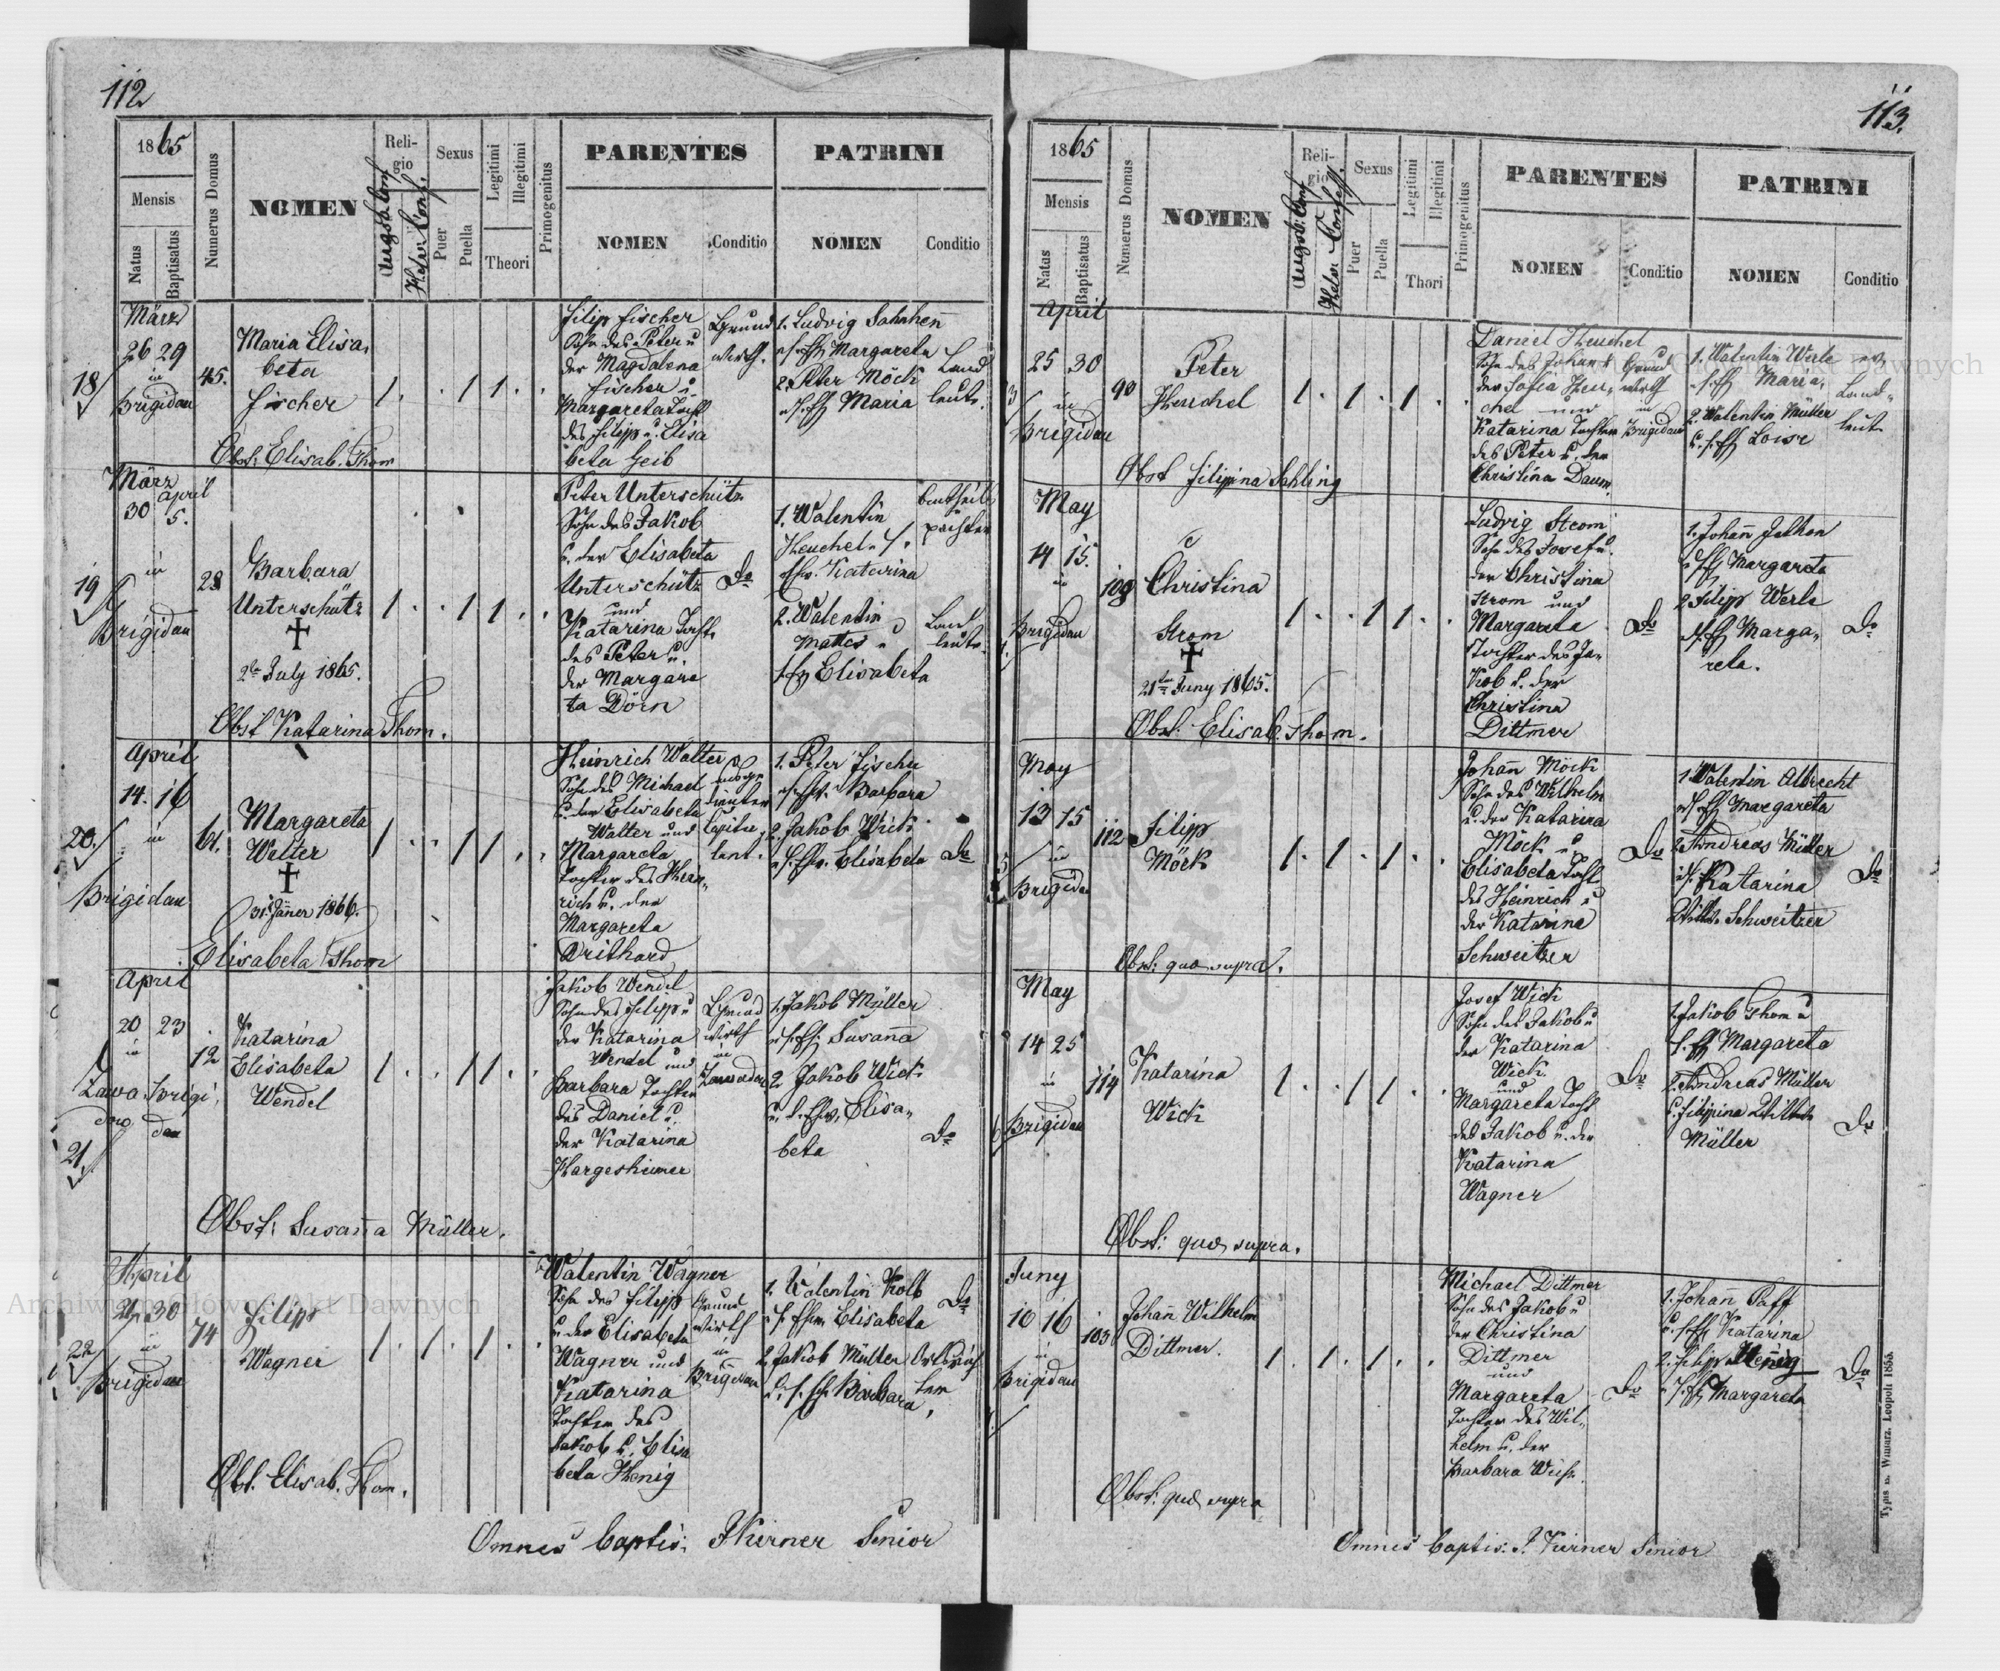 112
1865
Mensis
Natus
Baptisatus
Numerus Domus
NOMEN
Reli-
gio
Augsb. Conf.
Helv. Conf.
Sexus
Puer
Puella
Legitimi
Illegitimi
Theori
Primogenitus
PARENTES
NOMEN
Conditio
PATRINI
NOMEN
Conditio
März
26 29
in
Brigidau
18
45.
Maria Elisa-
beta
Fischer
1. 1 1
Filip Fischer
Sohn des Peter u
der Magdalena
Fischer u
Margareta Tocht
des Filipp u. Elisa
beta Geib
Grund
wirth.
1. Ludvig
Margareta
2. Peter Möck
Maria
Land
leute.
Obst. Elisab. Thom
März
30
April
5.
in
19
Brigidau
28
Barbara
Unterschütz
2te July 1865.
1. 1 1
Peter Unterschütz
Sohn des Jakob
u. der Elisabeta
Unterschütz
und
Katarina Tocht.
des Peter u.
der Margare
ta Dörn
Do
1. Walentin
Heuchel
Katarina
2. Walentin
Mattes u
Elisabeta
pächter
Land
leute.
Obst Katarina Thom.
April
14. 16
in
20.
Brigidau
61.
Margareta
Walter
31. Jänner 1866.
1 1 1
Heinrich Walter
Sohn des Michael
u. der Elisabeta
Walter und
Margareta
Tochter des Hein-
rich u. der
Margareta
1. Peter Fischer
Barbara
2. Jakob Wick
Elisabeta
Do
Elisabeta Thom
April
20 23
in
Brigi,
dau
21
12
Katarina
Elisabeta
Wendel
1 1 1
Jakob Wendel
Sohn des Filipp u
der Katarina
Wendel und
Barbara Tochter
des Daniel u.
der Katarina
Hargesheimer
Grund
wirth
in
1. Jakob Müller
Susana
2. Jakob Wick
Elisa-
beta
Do
Obst: Susana Müller.
April
30
in
22
Brigidau
74
Filipp
Wagner
1. 1. 1.
Walentin Wagner
Sohn des Filipp
u der Elisabeta
Wagner und
Katarina
Tochter des
Jakob u. Elisa
beta Henig
Grund
wirth
in
Brigidau
1. Walentin Kolb
Elisabeta
2. Jakob Müller
Barbara,
Do
Obst. Elisab. Thom.
Omnes baptis: J Kirner Senior
113.
1865
Mensis
Natus
Baptisatus
Numerus Domus
NOMEN
Reli-
gio
Augsb. Conf
Helv. Confess.
Sexus
Puer
Puella
Legitimi
Illegitimi
Thori
Primogenitus
PARENTES
NOMEN
Conditio
PATRINI
NOMEN
Conditio
April
25 30
in
Brigidau
90
Peter
Heuchel
1. 1. 1.
Daniel Heuchel
Sohn des Johan u
der Sofia Heu-
chel und
Katarina Tochter
des Peter u. der
Christina Daum.
Grund
wirth
in
Brigidau
1. Walentin Werle
Maria,
2. Walentin Müller
Loise
Land-
leut
Obst Filipina Sahling
May
14 15.
in
Brigidau
109
Christina
Strom
21ten Juny 1865.
1. 1 1.
Ludvig Strom
Sohn des Josef u.
der Christina
Strom und
Margareta
Tochter des Ja-
kob u. der
Christina
Dittmer
Do
1. Johan
Margareta
2. Filipp Werle
Marga-
reta.
Do
Obst. Elisab. Thom.
May
13 15
in
Brigidau
112
Filipp
Möck
1. 1. 1.
Johan Möck
Sohn des Wilhelm
u. der Katarina
Möck u
Elisabeta Tocht
des Heinrich u
der Katarina
Schweitzer
Do
1 Walentin Albrecht
Margareta
2 Andreas Müller
Katarina
Schweitzer
Do
Obst: quae supra.
May
14 25
in
Brigidau
114
Katarina
Wick
1. 1 1.
Josef Wick
Sohn des Jakob u
der Katarina
Wick
und
Margareta Tocht
des Jakob u. der
Katarina
Wagner
Do
1. Jakob Thom u
Margareta
2. Andreas Müller
u. Filipina
Müller
Do
Obst: quae supra.
Juny
10 16
in
Brigidau
105
Johan Wilhelm
Dittmer.
1. 1. 1.
Michael Dittmer
Sohn des Jakob u
der Christina
Dittmer
und
Margareta
Tochter des Wil-
helm u. der
Barbara Weiss.
Do
1. Johan Paff
Katarina
2. Filipp Henig
Margareta
Do
Obst: quae supra
Omnes baptis: J. Kirner Senior
Typis E. Winiarz. Leopoli 1855.
Archiwum Główne Akt Dawnych
Archiwum Główne Akt Dawnych